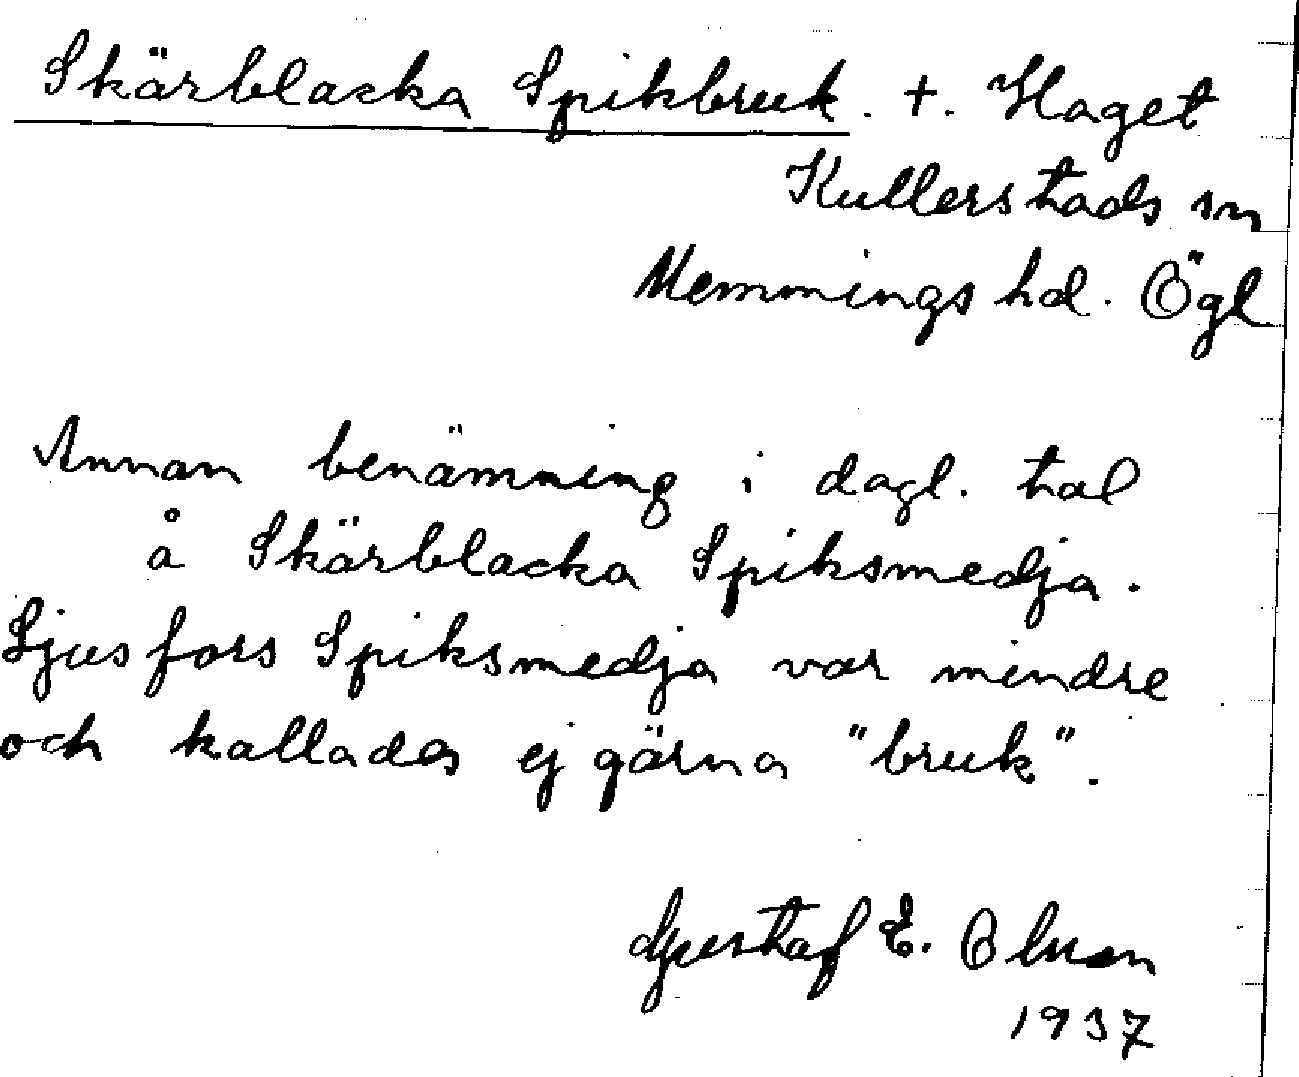 Skärblacka Spikbruk. +. Haget
Kullerstads sn
Memmings hd. Ögl
Annan benämning i dagl. tal
å Skärblacka Spiksmedja.
Ljusfors Spiksmedja var mindre
och kallades ej gärna "bruk".
Gustaf E. Olsson
1937